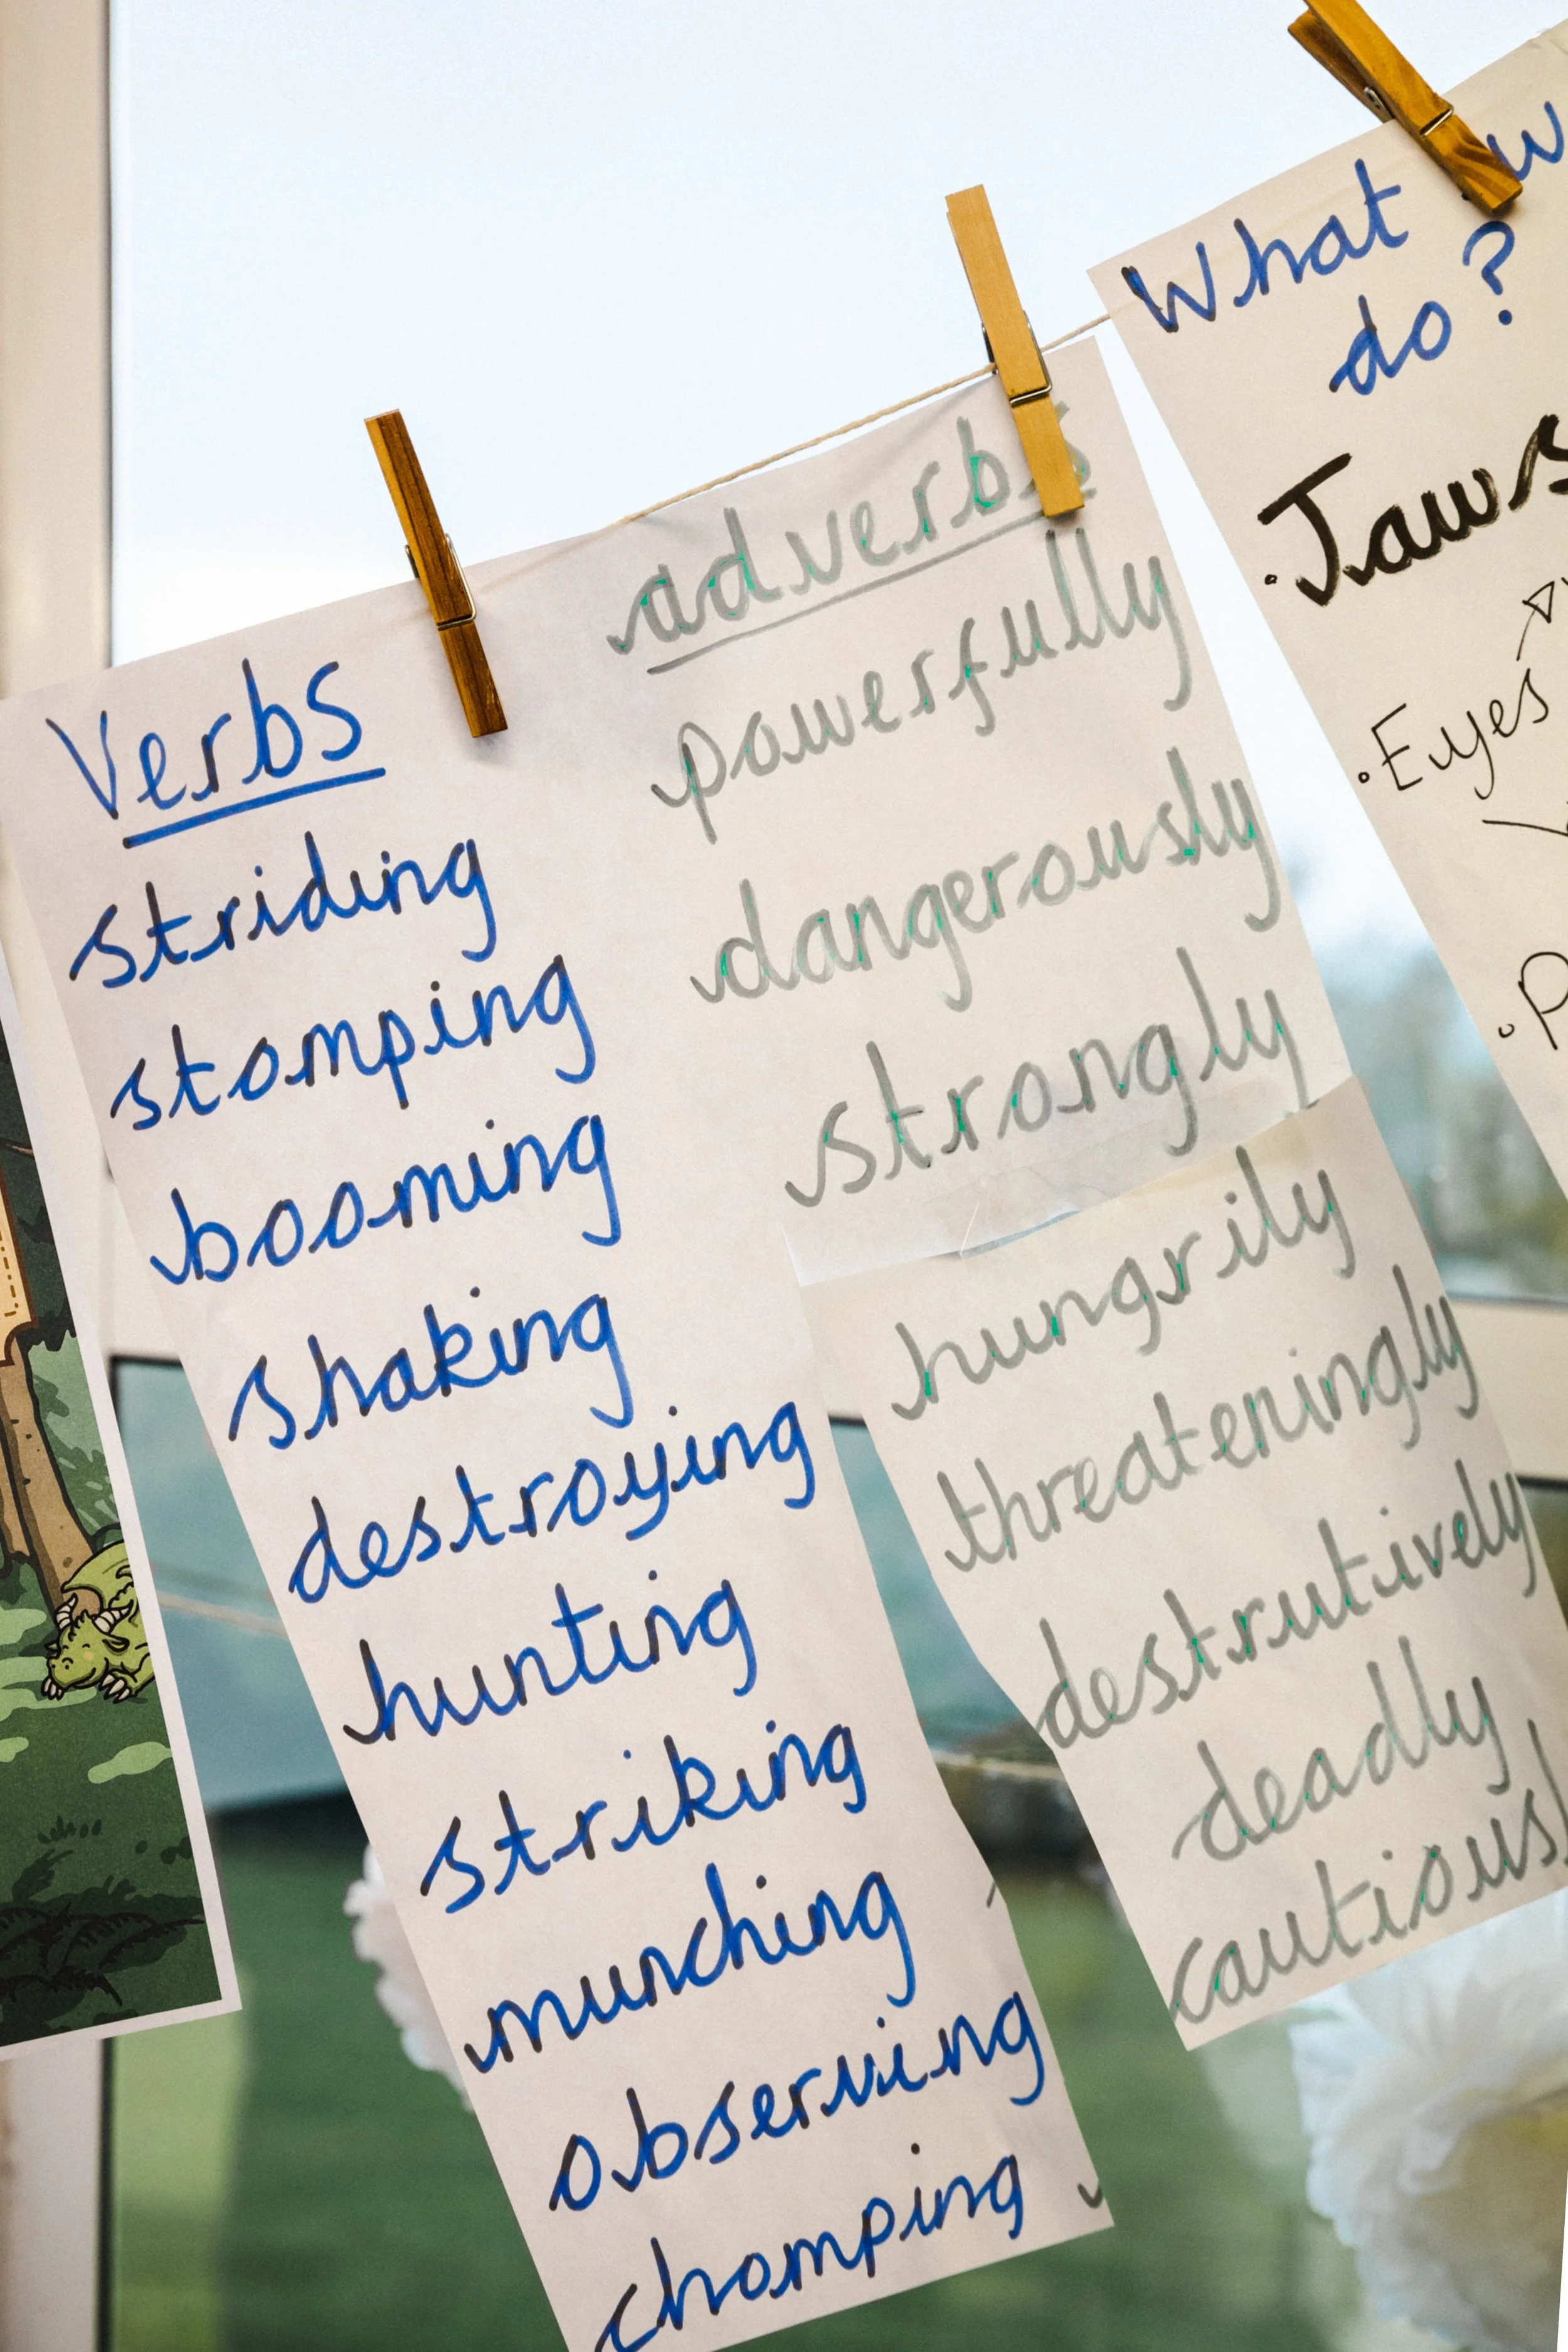 Verbs
striding
stomping
booming
shaking
destroying
hunting
striking
munching
observing
chomping
adverbs
powerfully
dangerously
strongly
hungrily
threateningly
destrutively
deadly
What
do?
Jaws
Eyes